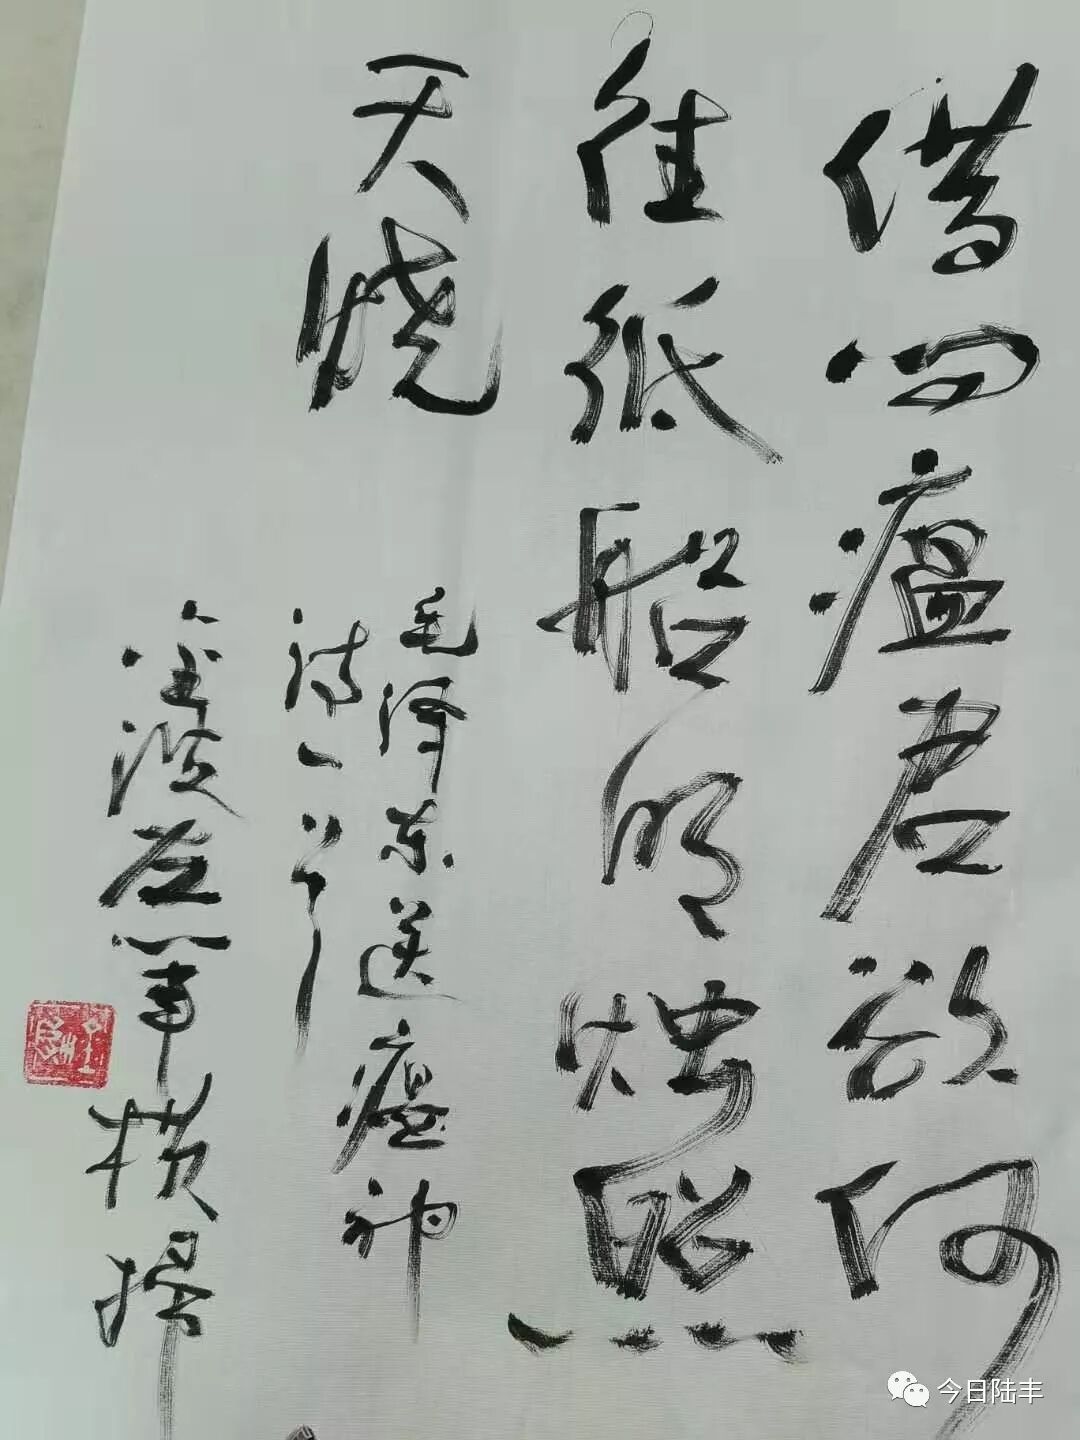 借问瘟君欲何
往纸船明烛照
天烧
毛泽东送瘟神
诗一首
今日陆丰